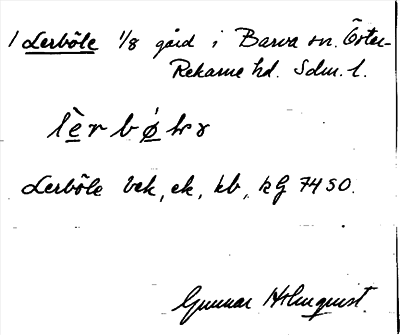 1 Lerböle 1/8 gård i Barva sn. Öster-
Rekarne hd. Sdm. l.
Lerböle bek, ek, kb, kG 7450.
Gunnar Holmquist.